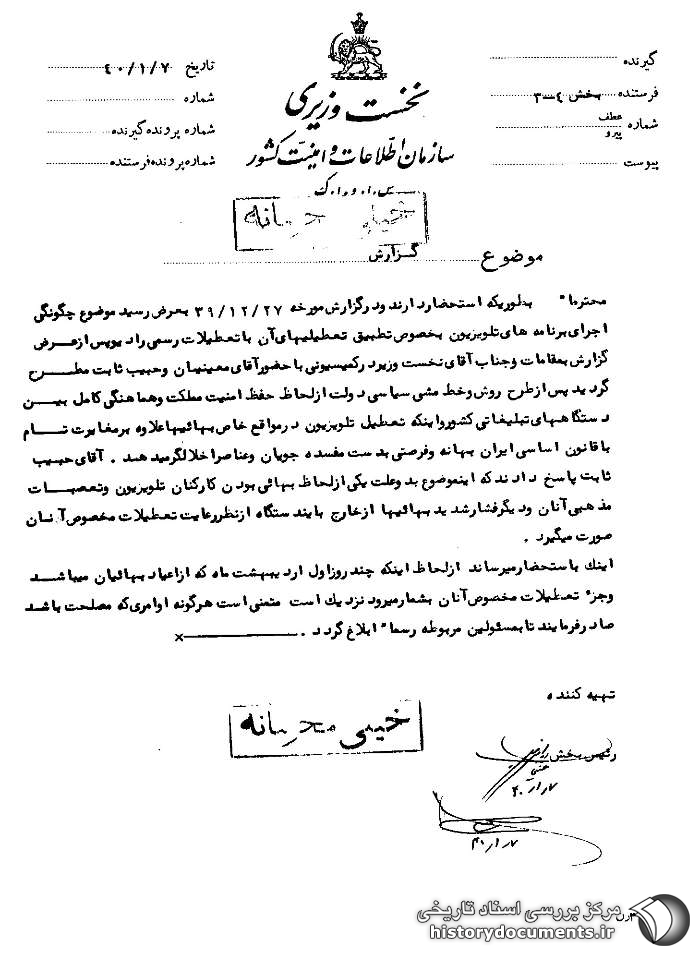 نخست وزیری
سازمان اطلاعات و امنیت کشور
س.ا.و.ا.ک
گیرنده
فرستنده بخش ٤-٣
شماره عطف
پیرو
پیوست
تاریخ ٤٠/١/٧
شماره
شماره پرونده گیرنده
شماره پرونده فرستنده
خیلی محرمانه
موضوع گزارش
محترما" بطوریکه استحضار دارند در گزارش مورخه ٣٩/١٢/٢٧ بعرض رسید موضوع چگونگی
اجرای برنامه های تلویزیون بخصوص تطبیق تعطیلیهای آن با تعطیلات رسمی رادیو پس از عرض
گزارش بمقامات و جناب آقای نخست وزیر در کمیسیونی با حضور آقای معینیان و حبیب ثابت مطرح
گردید پس از طرح روش و خط مشی سیاسی دولت از لحاظ حفظ امنیت مملکت و هماهنگی کامل بین
دستگاههای تبلیغاتی کشور و اینکه تعطیل تلویزیون در مواقع خاص بهائیها علاوه بر مغایرت تام
با قانون اساسی ایران بهانه و فرصتی بدست مفسده جویان و عناصر اخلالگر میدهد . آقای حبیب
ثابت پاسخ دادند که اینموضوع بدو علت یکی از لحاظ بهائی بودن کارکنان تلویزیون و تعصبات
مذهبی آنان و دیگر فشار شدید بهائیها از خارج باین دستگاه از نظر رعایت تعطیلات مخصوص آنان
صورت میگیرد .
اینك باستحضار میرساند از لحاظ اینکه چند روز اول اردیبهشت ماه که از اعیاد بهائیان میباشد
وجزء تعطیلات مخصوص آنان بشمار میرود نزدیك است متمنی است هرگونه اوامری که مصلحت باشد
صادر فرمایند تا بمسئولین مربوطه رسما" ابلاغ گردد . x
تهیه کننده
خیلی محرمانه
رئیس بخش
٤٠/١/٧
٤٠/١/٧
مرکز بررسی اسناد تاریخی
historydocuments.ir